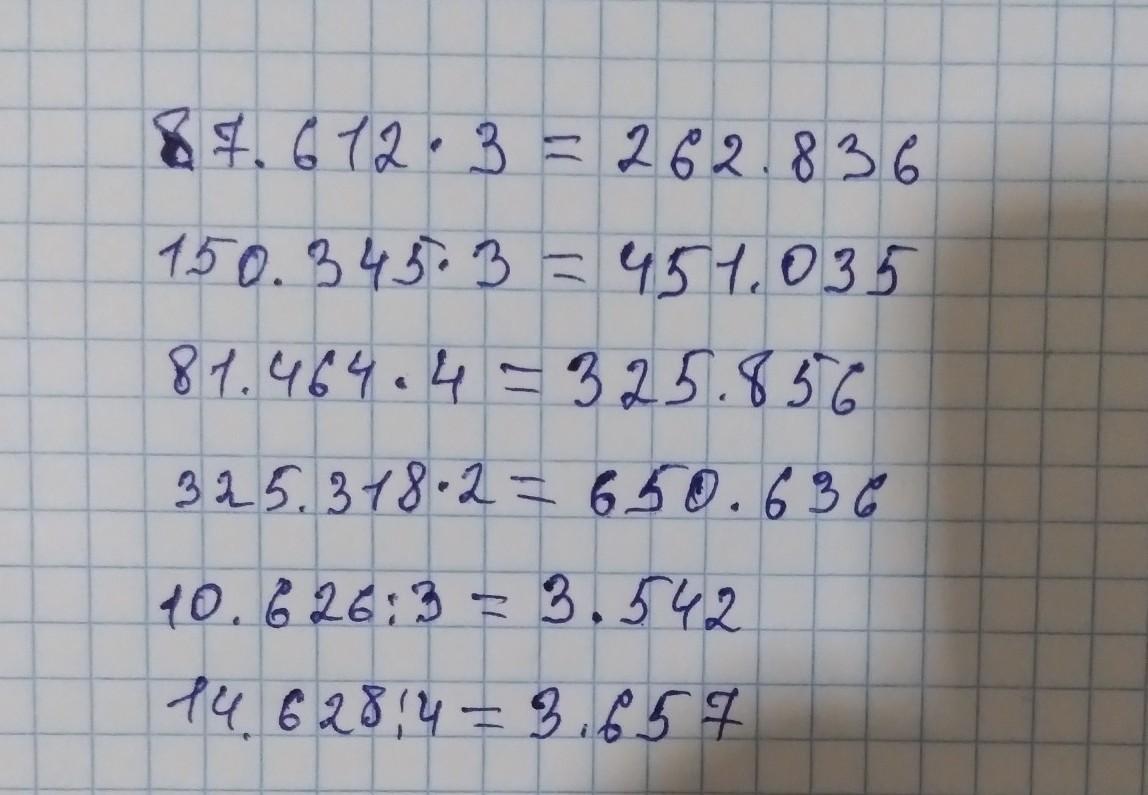 87.612 · 3 = 262.836
150.345 · 3 = 451.035
81.464 · 4 = 325.856
325.318 · 2 = 650.636
10.626 : 3 = 3.542
14.628 : 4 = 3.657